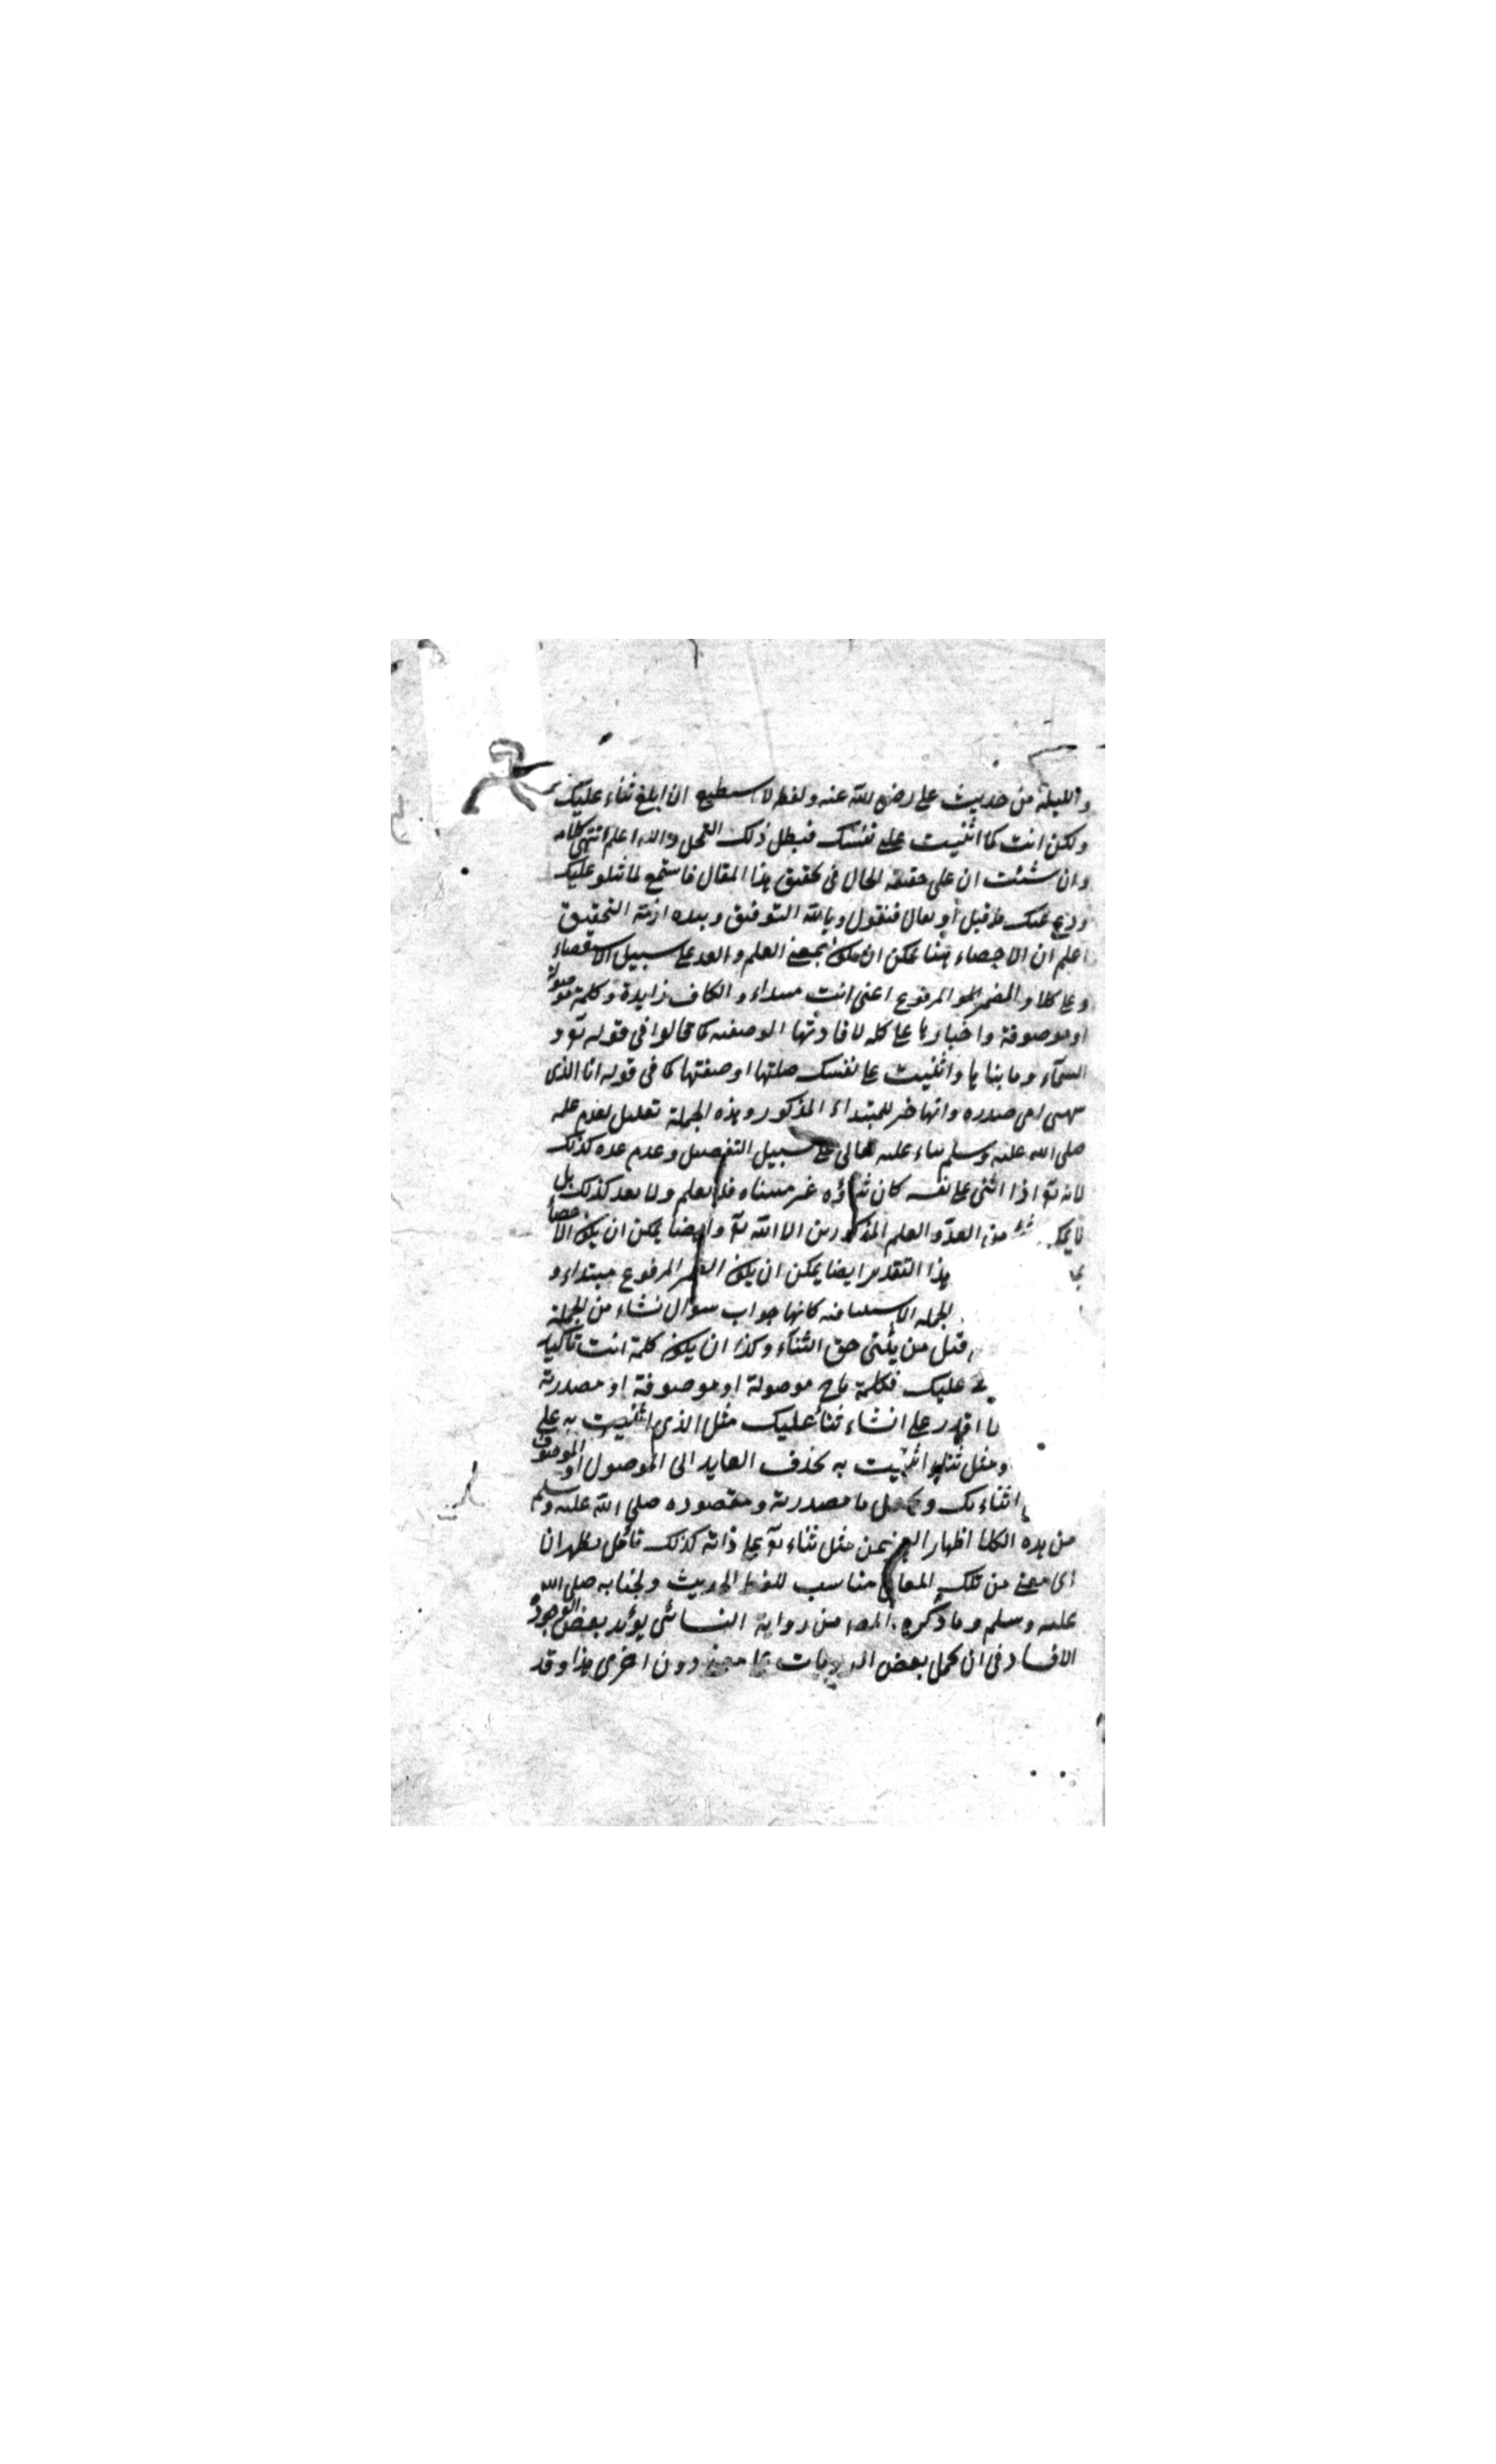 والليلة من حديث على رضى الله عنه ولفظه لا استطيع ان ابلغ ثناء عليك
ولكن انت كما اثنيت على نفسك فبطل ذلك التمحل والله اعلم انتهى كلامه
وان شئت ان على حقيقة الحال فى تحقيق هذا المقال فاستمع لما نتلو عليك
ودع عنك ما قيل او يقال فنقول وبالله التوفيق وبيده ازمة التحقيق
اعلم ان الاحصاء ههنا يمكن ان يكون بمعنى العلم والعد على سبيل الاستقصاء
وعلى كلا المرفوع اعنى انت مبتداء والكاف زايدة وكلمة موصولة
او موصوفة واختيارها على كلمه لافادتها الوصفيه كما قالوا فى قوله تع و
السمآء وما بناها واثنيت على نفسك صلتها او صفتها كما فى قوله انا الذى
سمتنى امى حيدره وانها خبر للمبتداء المذكور وهذه الجملة تعليل لعدم علمه
صلى الله عليه وسلم ثناء عليه تعالى على سبيل التفصيل وعدم عده كذلك
لانه تع اذا اثنى على نفسه كان ثناؤه غير متناه فلا يعلم ولا يعد كذلك بل
لا يمكن من العد والعلم المذكورين الا الله تع وايضا يمكن ان يكون الاحصاء
هذا التقدير ايضا يمكن ان يكون المرفوع مبتداء و
الجمله الاستينافيه كانها جواب سؤال نشاء من الجملة
قيل من يثنى حق الثناء وكذا ان يكون كلمة انت تاكيد
عليك فكلمة ما ح موصولة او موصوفة او مصدرية
لا اقدر على انشاء ثناء عليك مثل الذى اثنيت به على
ومثل ثناء اثنيت به بحذف العايد الى الموصول او الموصوف
اثنائك ويجعل ما مصدرية ومقصوده صلى الله عليه وسلم
من هذه الكلمات اظهار العجز عن مثل ثناء تع على ذاته كذلك تأمل يظهر ان
اى معنى من تلك المعانى مناسب للفظ الحديث ولجنابه صلى الله
عليه وسلم وما ذكره من رواية النسائى يؤيد بعض الوجوه
الافساد فى ان يحمل بعض الروايات على معنى دون اخرى هذا وقد